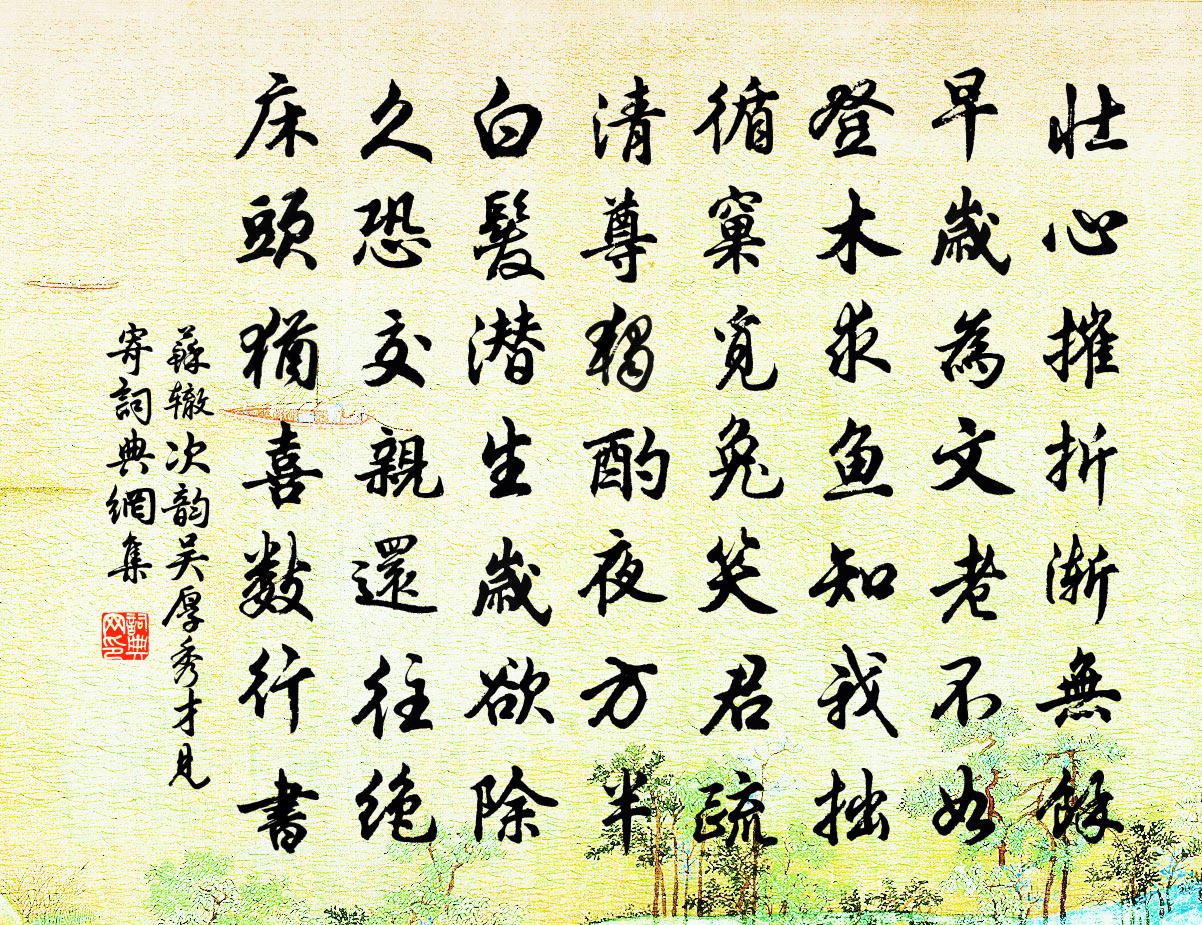 壯心摧折漸無餘
早歲為文老不如
登木求魚知我拙
循窠覓兔笑君疏
清尊獨酌夜方半
白髮潛生歲欲除
久恐交親還往絕
床頭猶喜數行書
蘇辙次韵吴厚秀才見
寄詞典網集
詞典网印